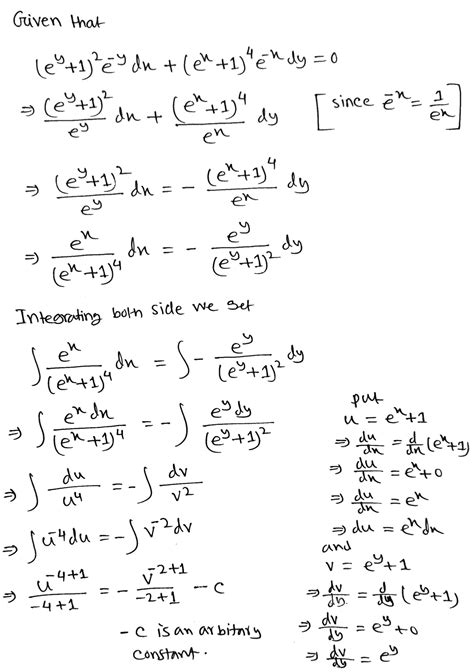 Given that
(e^y+1)^2 e^-y dx + (e^x+1)^4 e^-x dy = 0
⇒ (e^y+1)^2/e^y dx + (e^x+1)^4/e^x dy [since e^-x = 1/e^x]
⇒ (e^y+1)^2/e^y dx = - (e^x+1)^4/e^x dy
⇒ e^x/(e^x+1)^4 dx = - e^y/(e^y+1)^2 dy
Integrating both side we get
∫ e^x/(e^x+1)^4 dx = ∫ - e^y/(e^y+1)^2 dy
⇒ ∫ e^x dx/(e^x+1)^4 = - ∫ e^y dy/(e^y+1)^2
⇒ ∫ du/u^4 = - ∫ dv/v^2
⇒ ∫ u^-4 du = - ∫ v^-2 dv
⇒ u^-4+1/-4+1 = - v^-2+1/-2+1 - c
- c is an arbitary
constant.
put
u = e^x+1
⇒ du/dx = d/dx (e^x+1)
⇒ du/dx = e^x+0
⇒ du/dx = e^x
⇒ du = e^x dx
and
v = e^y+1
⇒ dv/dy = d/dy (e^y+1)
⇒ dv/dy = e^y+0
⇒ dv/dy = e^y